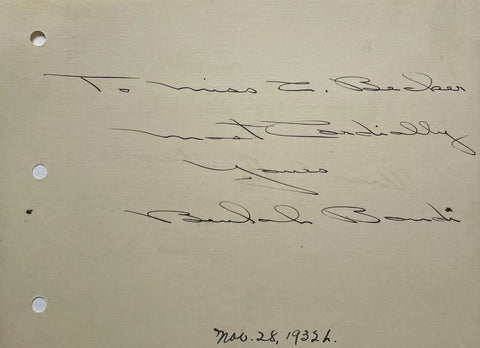 To Miss E. Becker
Most Cordially
Yours
Beulah Bondi
Nov. 28, 1932